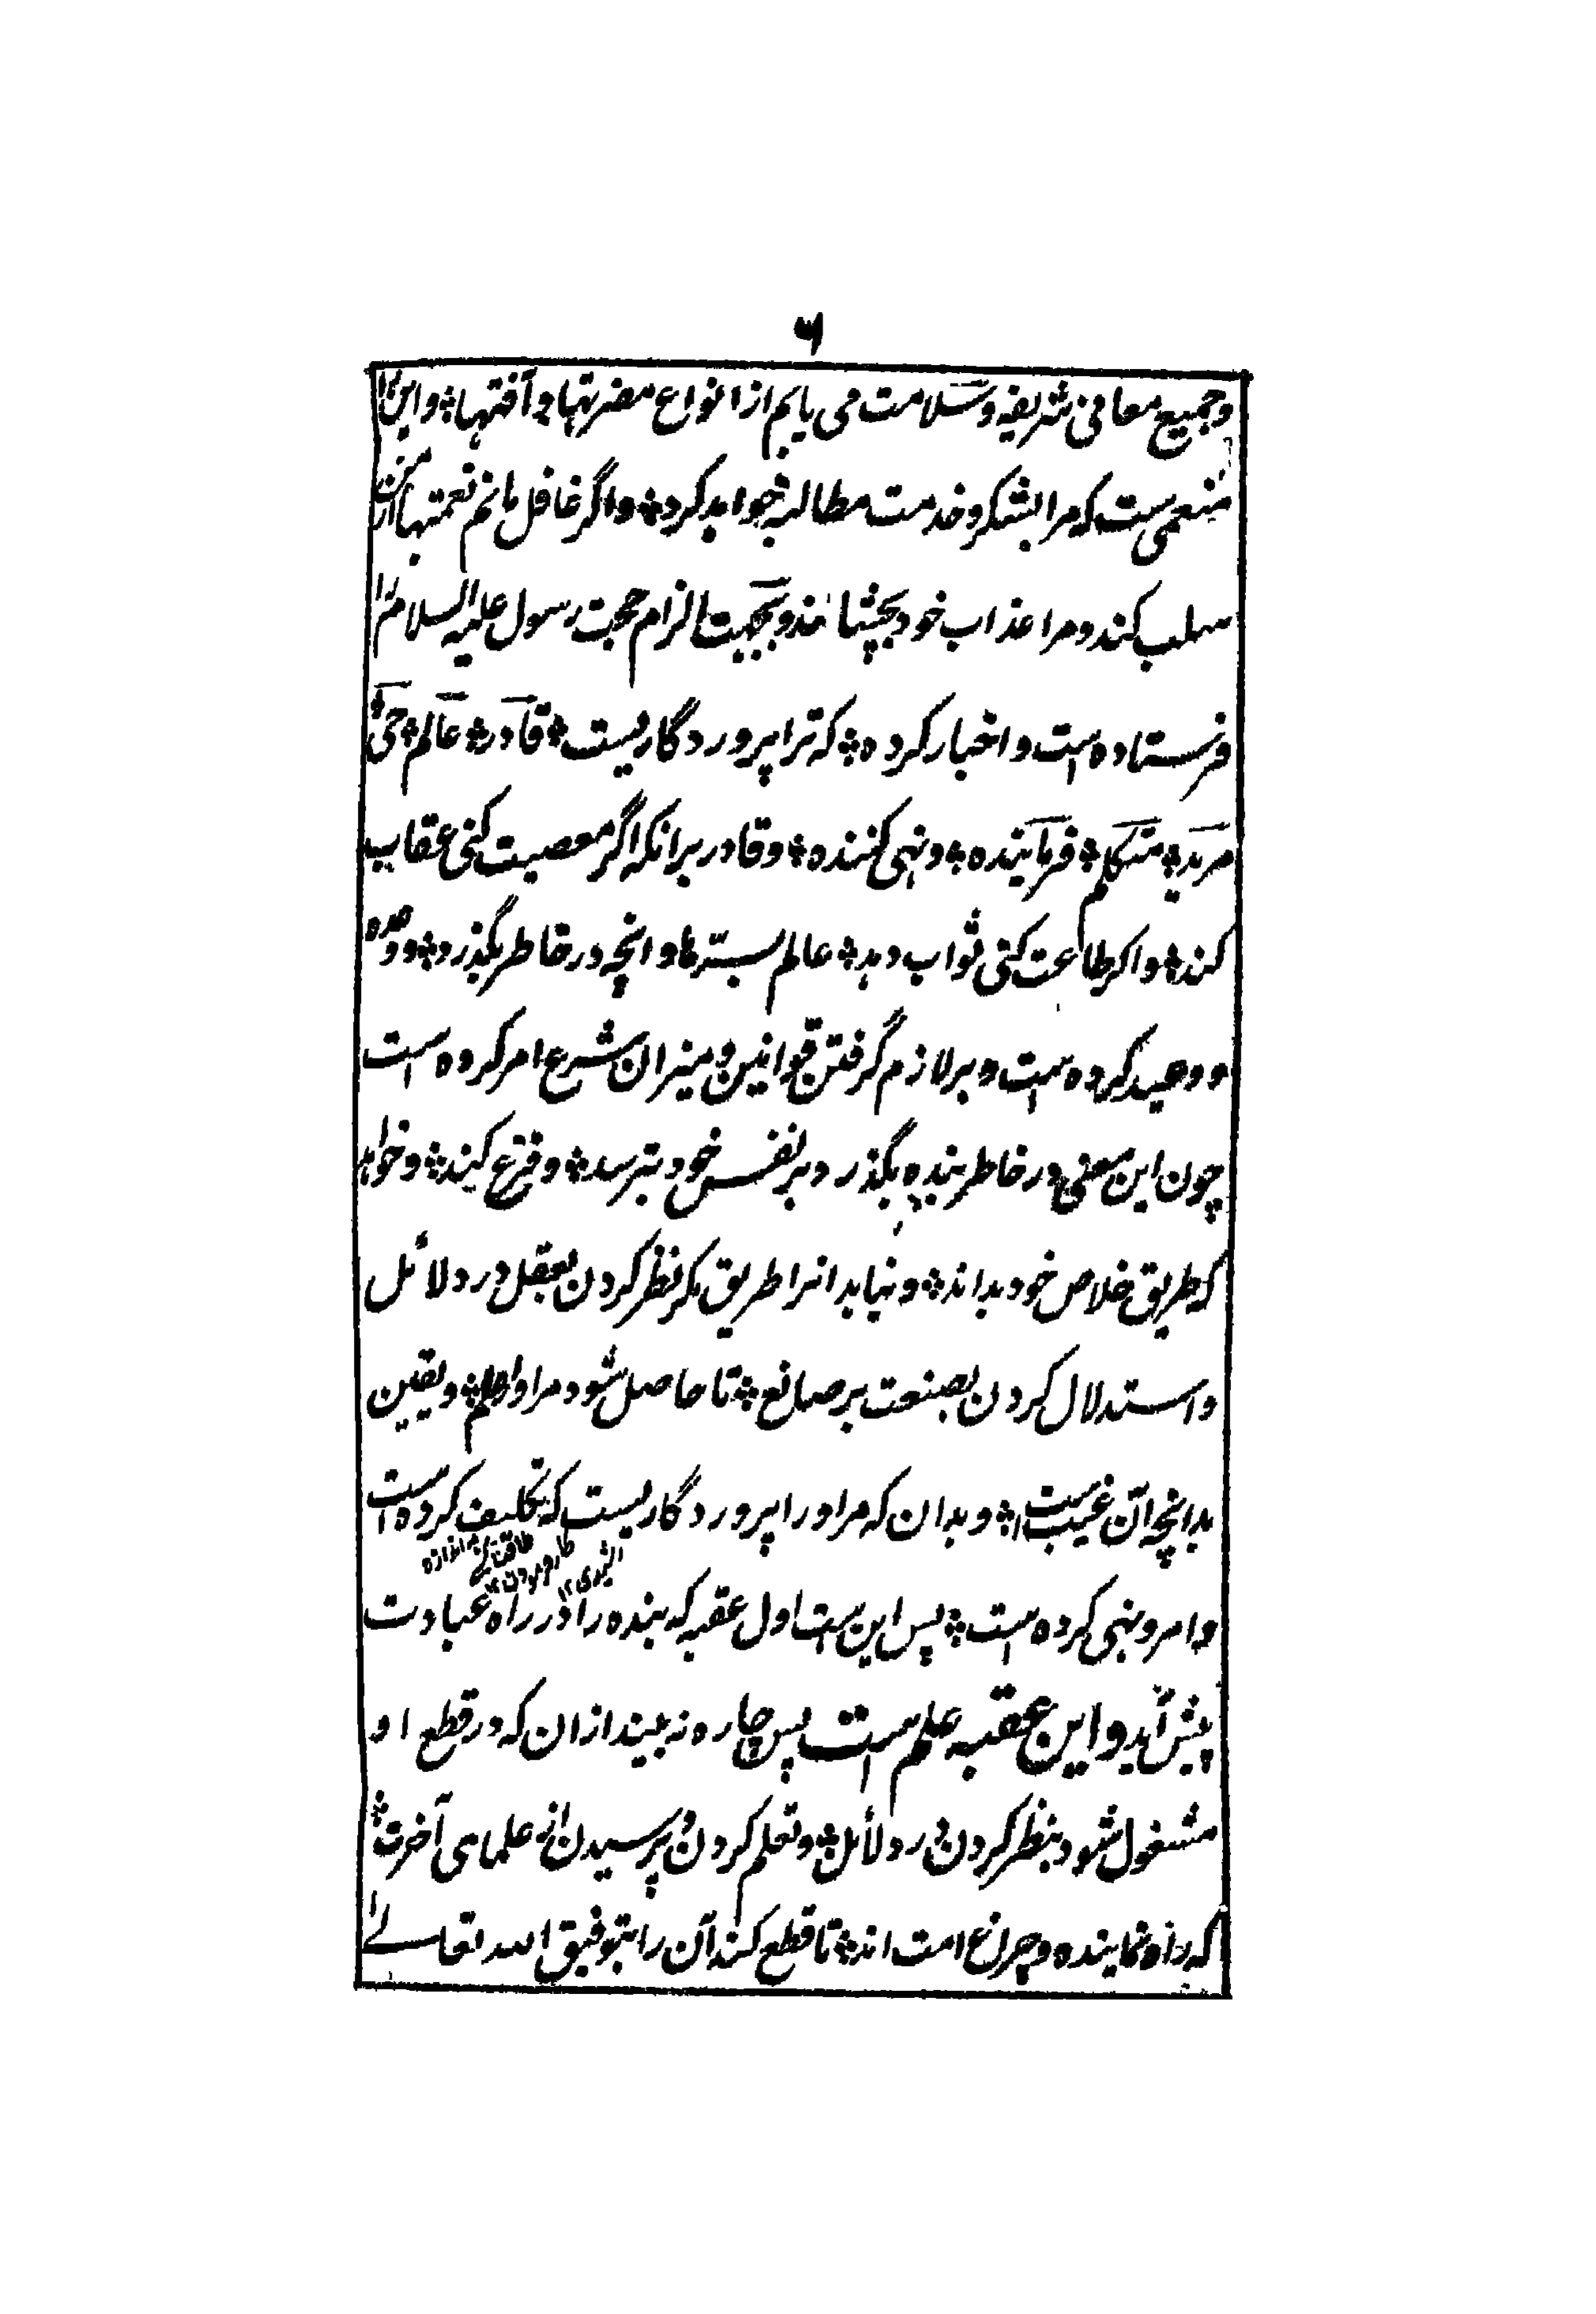 ۶
وجمیع معانی شریفه وسلامت می یابم از انواع مضرتها وآفتها؞ واین را
منعمی ست که مرا بشکر وخدمت مطالبه خواهد کرد؞ واگر غافل مانم نعمتها از من
سلب کند ومرا عذاب خود بچشاند وبجهت الزام حجت رسول علیه السلام را
فرستاده است واخبار کرده؞ که ترا پروردگاریست؞ قادر؞ عالم؞ حی؞
مرید؞ متکلم؞ فرمآینده؞ ونهی کننده؞ وقادر برانکه اگر معصیت کنی عقاب
کند؞ واکر طاعت کنی ثواب دهد؞ عالم بسرّها وانچه در خاطر بگذرد؞ ووعده
ووعید کرده است وبر لازم گرفتن قوانین ومیزان شرع امر کرده است
چون این معنی در خاطر بنده بگذرد بر نفس خود بترسد؞ وفزع کند؞ وخواهد
که طریق خلاص خود بداند؞ ونیابد انرا طریق مگر نظر کردن بعقل در دلائل
واستدلال کردن بصنعت بر صانع؞ تا حاصل شود مر اورا علم؞ ویقین
بدانچه آن غیب است؞ وبدان که مر اورا پروردگاریست که تکلیف کرده است
وامر ونهی کرده است؞ پس این ست اول عقبه که بنده را در راه عبادت
پیش آید واین عقبه علم است پس چاره نه بیند ازان که در قطع او
مشغول شود بنظر کردن در دلائل؞ وتعلم کردن وپرسیدن از علمای آخرت؞
که راه نماینده وچراغ امت اند؞ تا قطع کند آن را بتوفیق الله تعالے